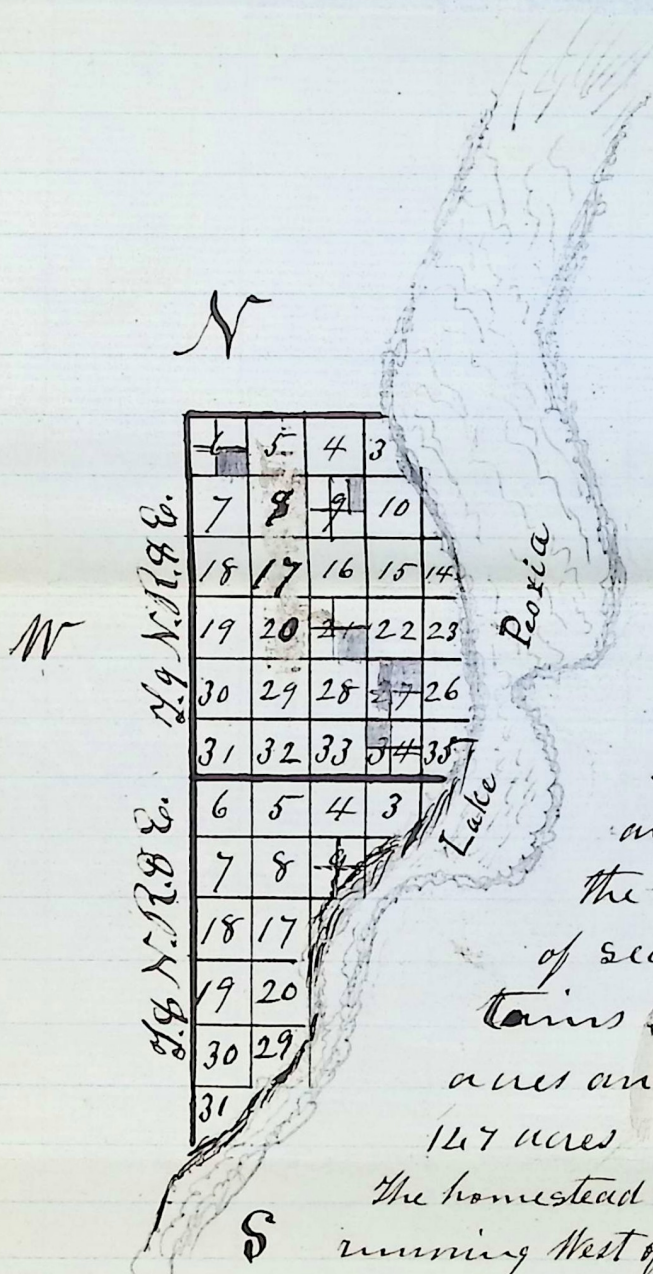 N
W
T. 9 N. R. 8 E.
6 5 4 3
7 8 9 10
18 17 16 15 14
19 20 21 22 23
30 29 28 27 26
31 32 33 34 35
T. 8 N. R. 8 E.
6 5 4 3
7 8 9
18 17
19 20
30 29
31
Peoria
Lake
the
of sec
tains
acres an
147 acres
The homestead
running West of
S